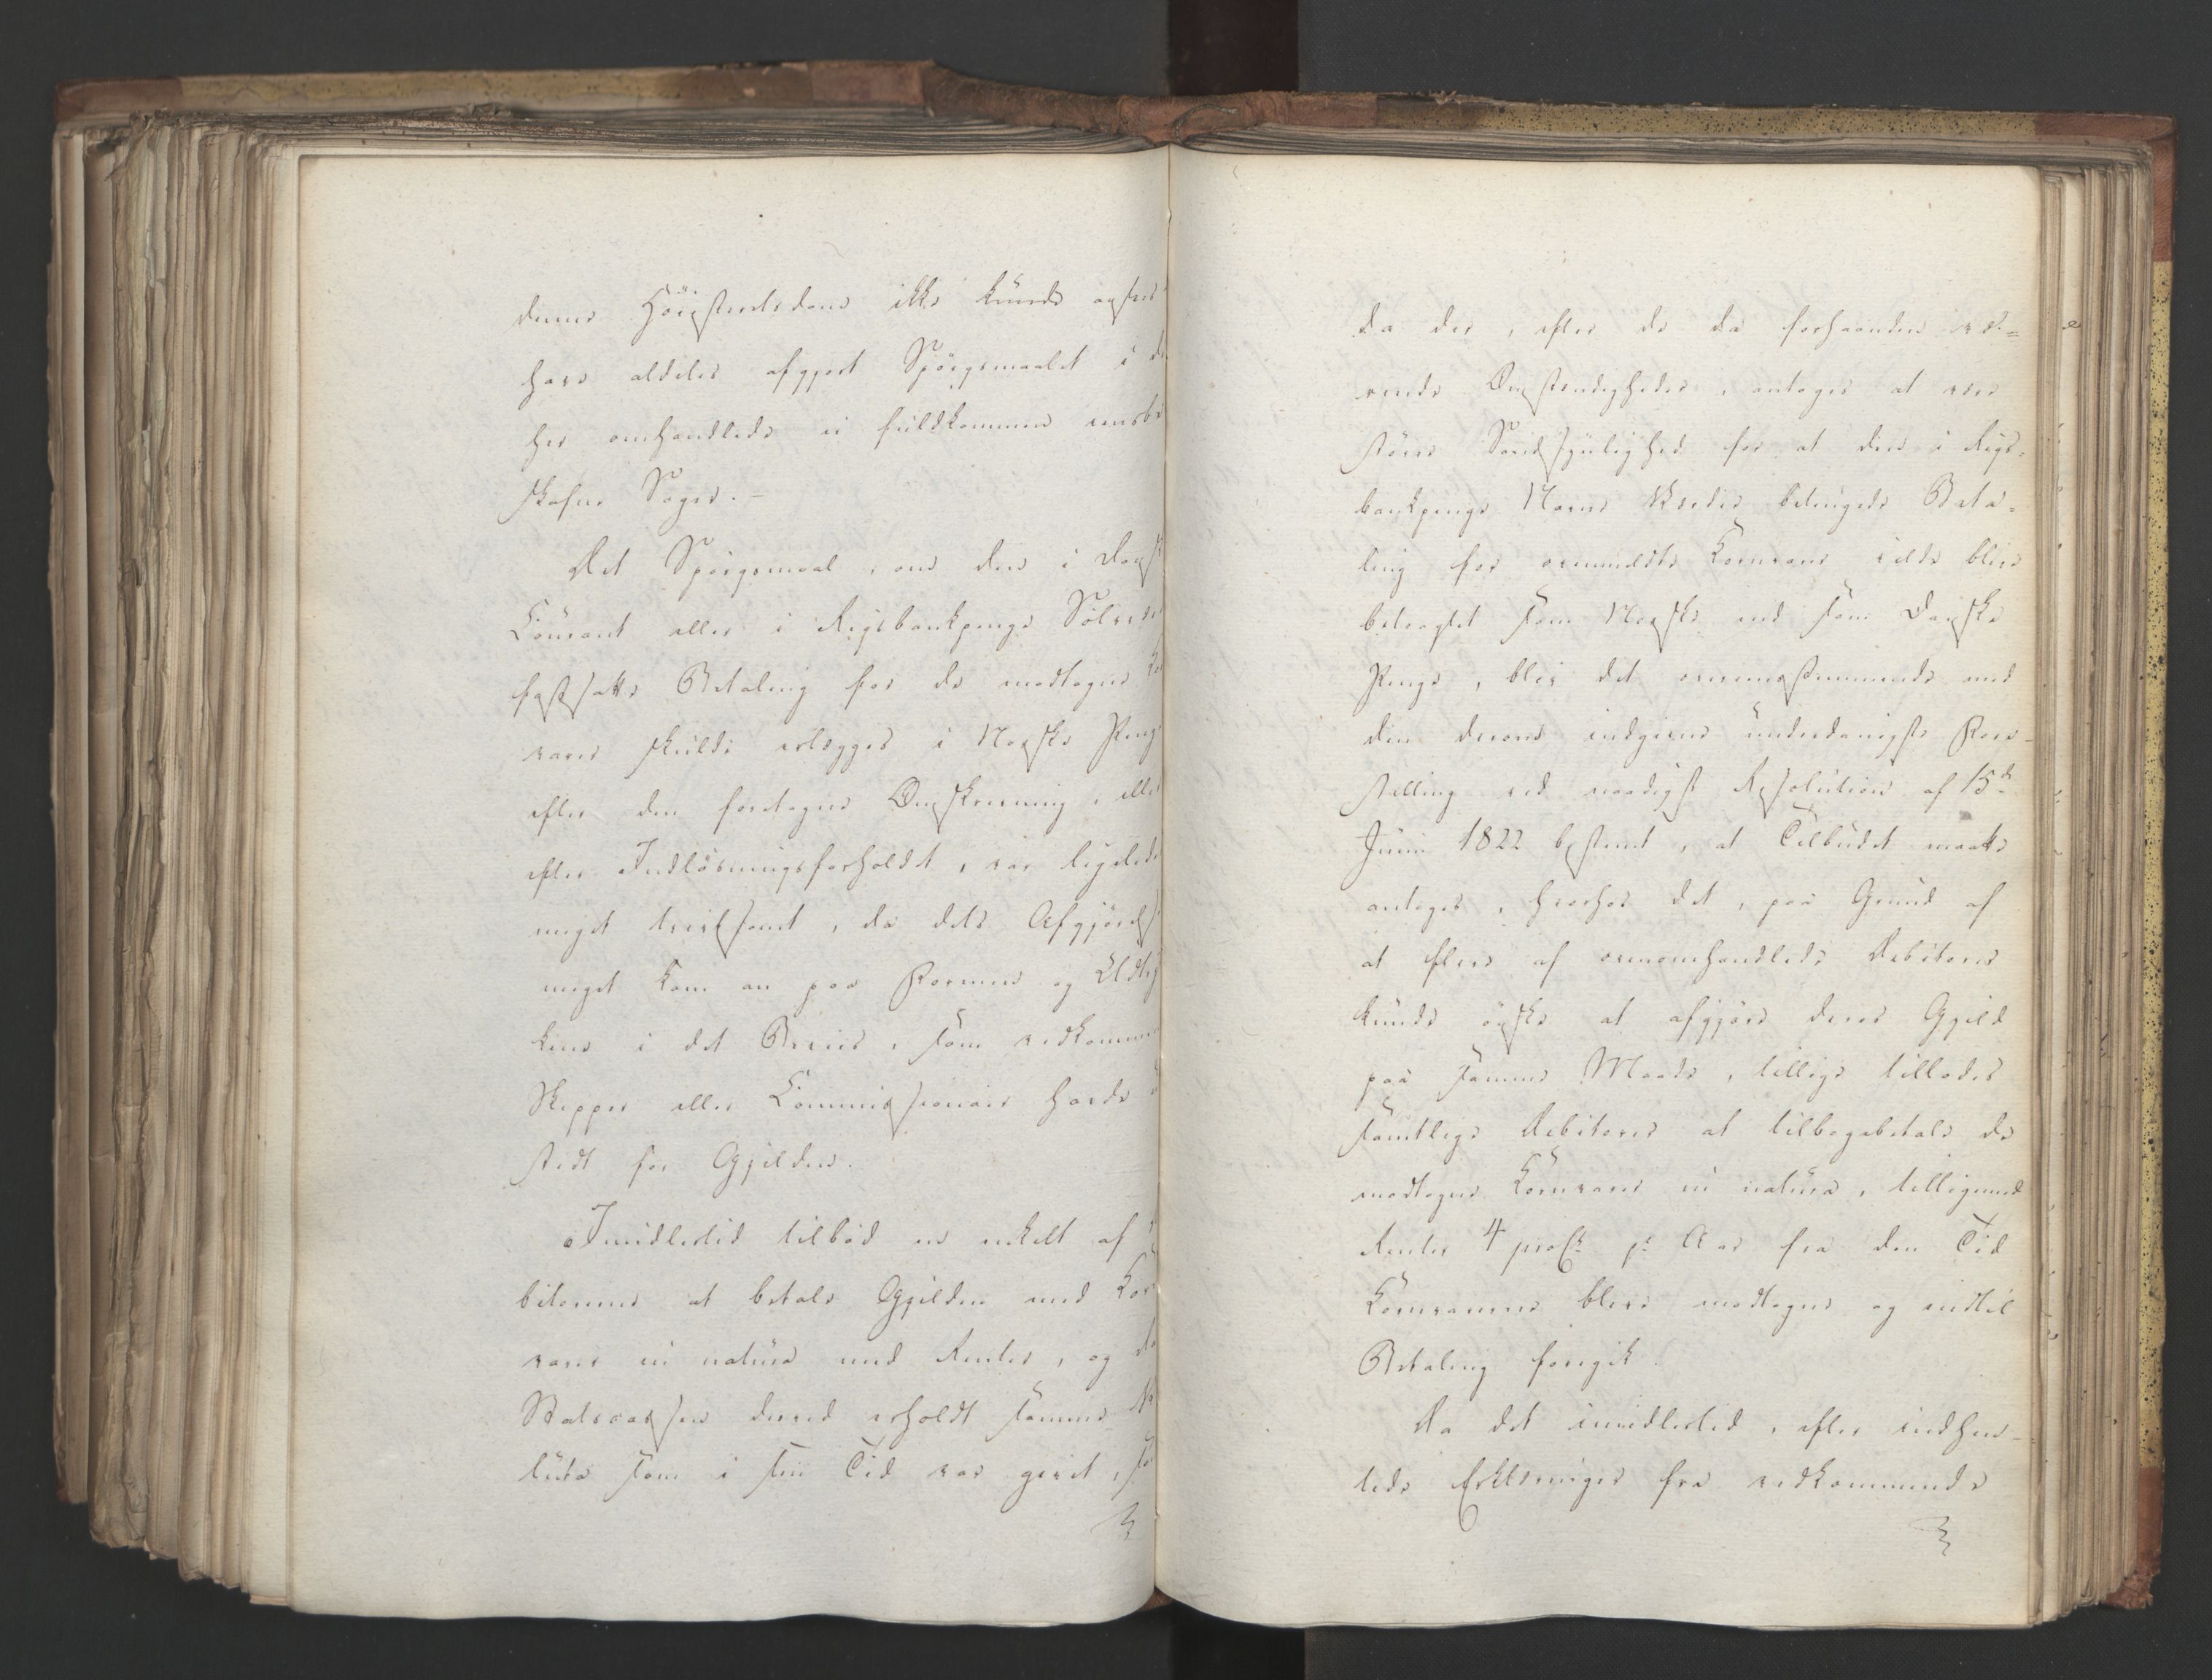 denne Höiesteretsdom ikke kunde ansees
have aldeles afgjort Spörgsmaalet i de
her omhandlede ei fuldkommen eensbe
skafne Sager. -
Det Spörgsmaal, om den i Dansk
Courant eller i Rigsbankpenge Sölvværdi
fastsatte Betaling for de modtagne Ko
varer skulde erlægges i Norske Penge
efter den foretagne Omskrivning, eller
efter Indlösningsforholdet, var ligeledes
meget tvivlsomt, da dets Afgjörelse
meget kom an paa Formen og Udtryk
kene i det Beviis, som vedkommende
Skipper eller Commissionair havde ud
stedt for Gjelden.
Imidlertid tilböd en enkelt af De
bitorerne at betale Gjelden med Korn
varer in natura med Renter, og da
Statscassen derved erholdt samme Va
luta som i sin Tid var givet, sa
da der, efter de da forhaanden væ-
rende Omstændigheder, antoges at være
större Sandsynlighed for at den i Rigs-
bankpenge Navne Værdie betingede Beta-
ling for ovenmeldte Kornvarer vilde blive
betragtet som Norske end som Danske
Penge, blev det overensstemmende med
den derom indgivne underdanigste Fore-
stilling ved naadigst Resolution af 15de
Junii 1822 bestemt, at Tilbudet maatte
antages, hvorhos det, paa Grund af
at flere af ovenomhandlede Debitorer
kunde önske at afgjöre deres Gjeld
paa samme Maade, tillige tillodes
samtlige Debitorer at tilbagebetale de
modtagne Kornvarer in natura, tilligemed
Renter 4 proCt. pr. Aar fra den Tid
Kornvarerne bleve modtagne og indtil
Betaling foregik.
Da det imidlertid, efter indhen-
tede Erklæringer fra vedkommende